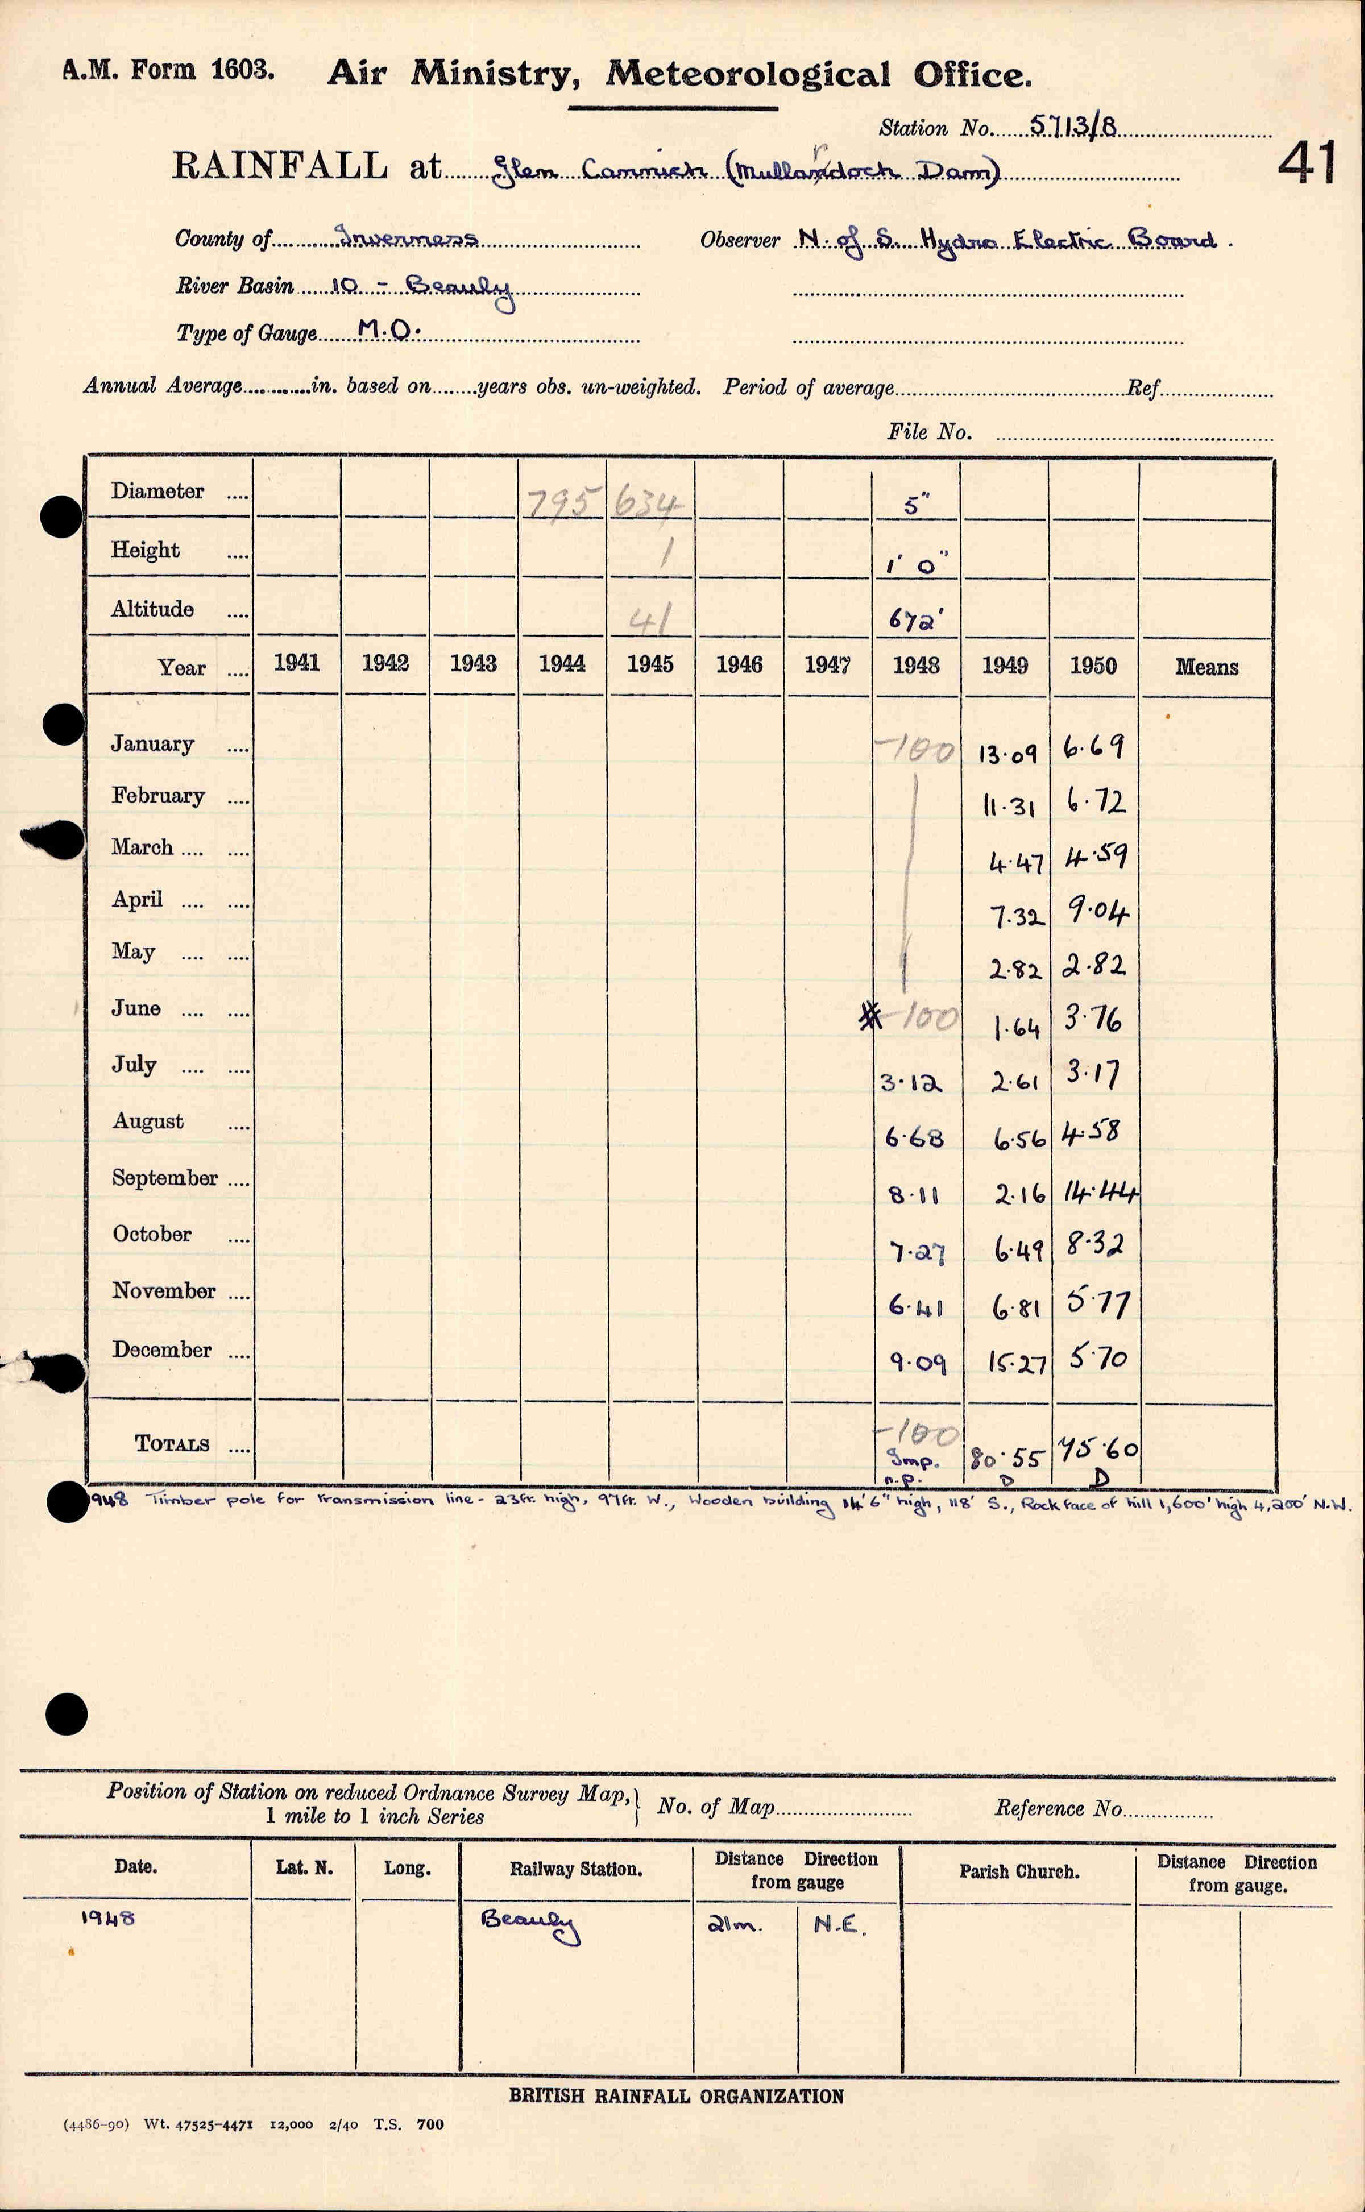 A.M. Form 1603. Air Ministry, Meteorological Office.
Station No. 5713/8
41
RAINFALL at Glen Cannich (Mullardoch Dam)
County of Inverness Observer N. of S. Hydro Electric Board.
River Basin 10 - Beauly
Type of Gauge M.O.
Annual Average............in. based on........years obs. un-weighted. Period of average Ref.
File No.
Diameter .... 795 634 5"
Height .... 1 1' 0"
Altitude .... 41 672'
Year .... 1941 1942 1943 1944 1945 1946 1947 1948 1949 1950 Means
January .... -100 13.09 6.69
February .... 11.31 6.72
March .... .... 4.47 4.59
April .... .... 7.32 9.04
May .... .... 2.82 2.82
June .... .... -100 1.64 3.76
July .... .... 3.12 2.61 3.17
August .... 6.68 6.56 4.58
September .... 8.11 2.16 14.44
October .... 7.27 6.49 8.32
November .... 6.41 6.81 5.77
December .... 9.09 15.27 5.70
-100
TOTALS .... Imp. 80.55 75.60
n.p. D D
1948 Timber pole for transmission line - 23ft. high, 97ft. W., Wooden building 14'6" high, 118' S., Rock face of hill 1,600' high 4,200' N.W.
Position of Station on reduced Ordnance Survey Map, } No. of Map Reference No.
1 mile to 1 inch Series
Date. Lat. N. Long. Railway Station. Distance Direction from gauge Parish Church. Distance Direction from gauge.
1948 Beauly 21m. N.E.
BRITISH RAINFALL ORGANIZATION
(4486-90) Wt. 47525-4471 12,000 2/40 T.S. 700